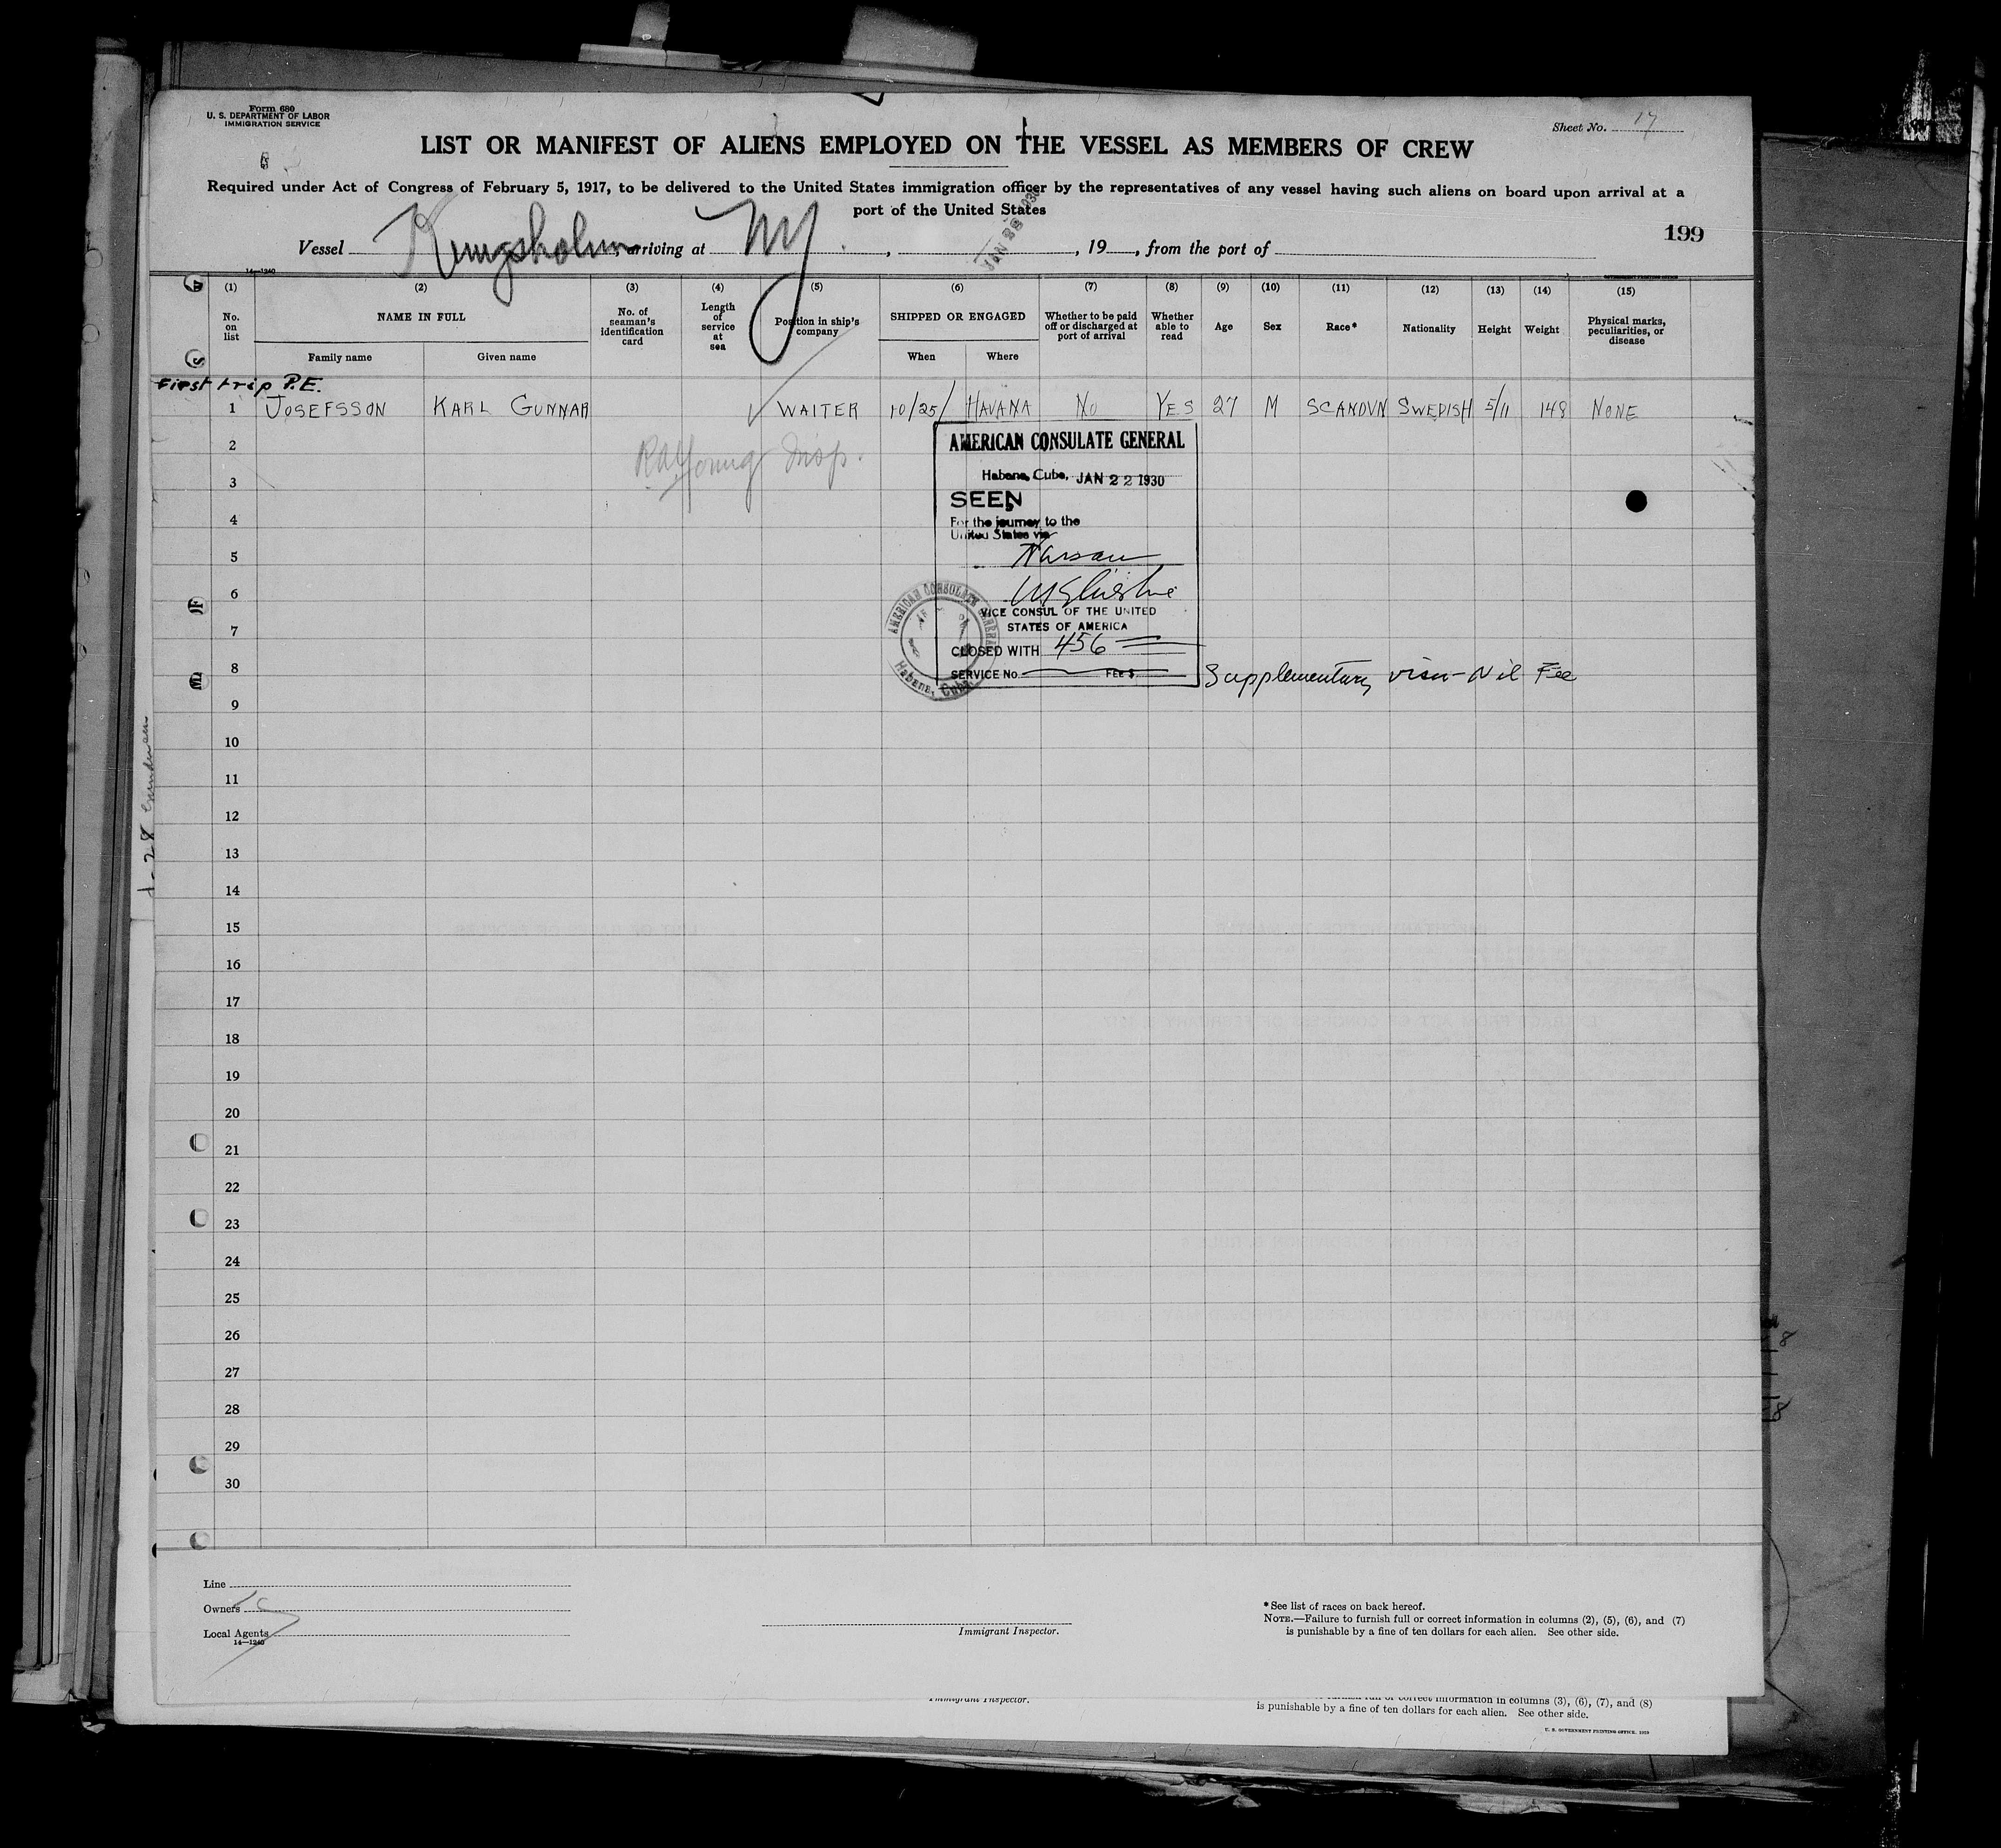 Form 680
U. S. DEPARTMENT OF LABOR
IMMIGRATION SERVICE
Sheet No. 17
LIST OR MANIFEST OF ALIENS EMPLOYED ON THE VESSEL AS MEMBERS OF CREW
Required under Act of Congress of February 5, 1917, to be delivered to the United States immigration officer by the representatives of any vessel having such aliens on board upon arrival at a
port of the United States
199
Vessel Kungsholm, arriving at NY, JAN 28 1930, 19, from the port of
14—1240
GOVERNMENT PRINTING OFFICE
(1) (2) (3) (4) (5) (6) (7) (8) (9) (10) (11) (12) (13) (14) (15)
No. on list
NAME IN FULL
Family name
Given name
No. of seaman's identification card
Length of service at sea
Position in ship's company
SHIPPED OR ENGAGED
When
Where
Whether to be paid off or discharged at port of arrival
Whether able to read
Age
Sex
Race*
Nationality
Height
Weight
Physical marks, peculiarities, or disease
First trip P.E.
1 JOSEFSSON KARL GUNNAR WAITER 10/25/ HAVANA NO YES 27 M SCANDVN SWEDISH 5/11 148 NONE
2
3
4
5
6
7
8
9
10
11
12
13
14
15
16
17
18
19
20
21
22
23
24
25
26
27
28
29
30
Young Insp.
AMERICAN CONSULATE GENERAL
Habana, Cuba, JAN 22 1930
SEEN
For the journey to the
United States via
Nassau
VICE CONSUL OF THE UNITED
STATES OF AMERICA
CLOSED WITH 456
SERVICE No. FEE $
Supplementary visa - Nil Fee
AMERICAN CONSULATE GENERAL
Habana, Cuba
Line
Owners
Local Agents
14—1240
Immigrant Inspector.
*See list of races on back hereof.
NOTE.—Failure to furnish full or correct information in columns (2), (5), (6), and (7)
is punishable by a fine of ten dollars for each alien. See other side.
Immigrant Inspector.
correct information in columns (3), (6), (7), and (8)
is punishable by a fine of ten dollars for each alien. See other side.
U. S. GOVERNMENT PRINTING OFFICE: 1929